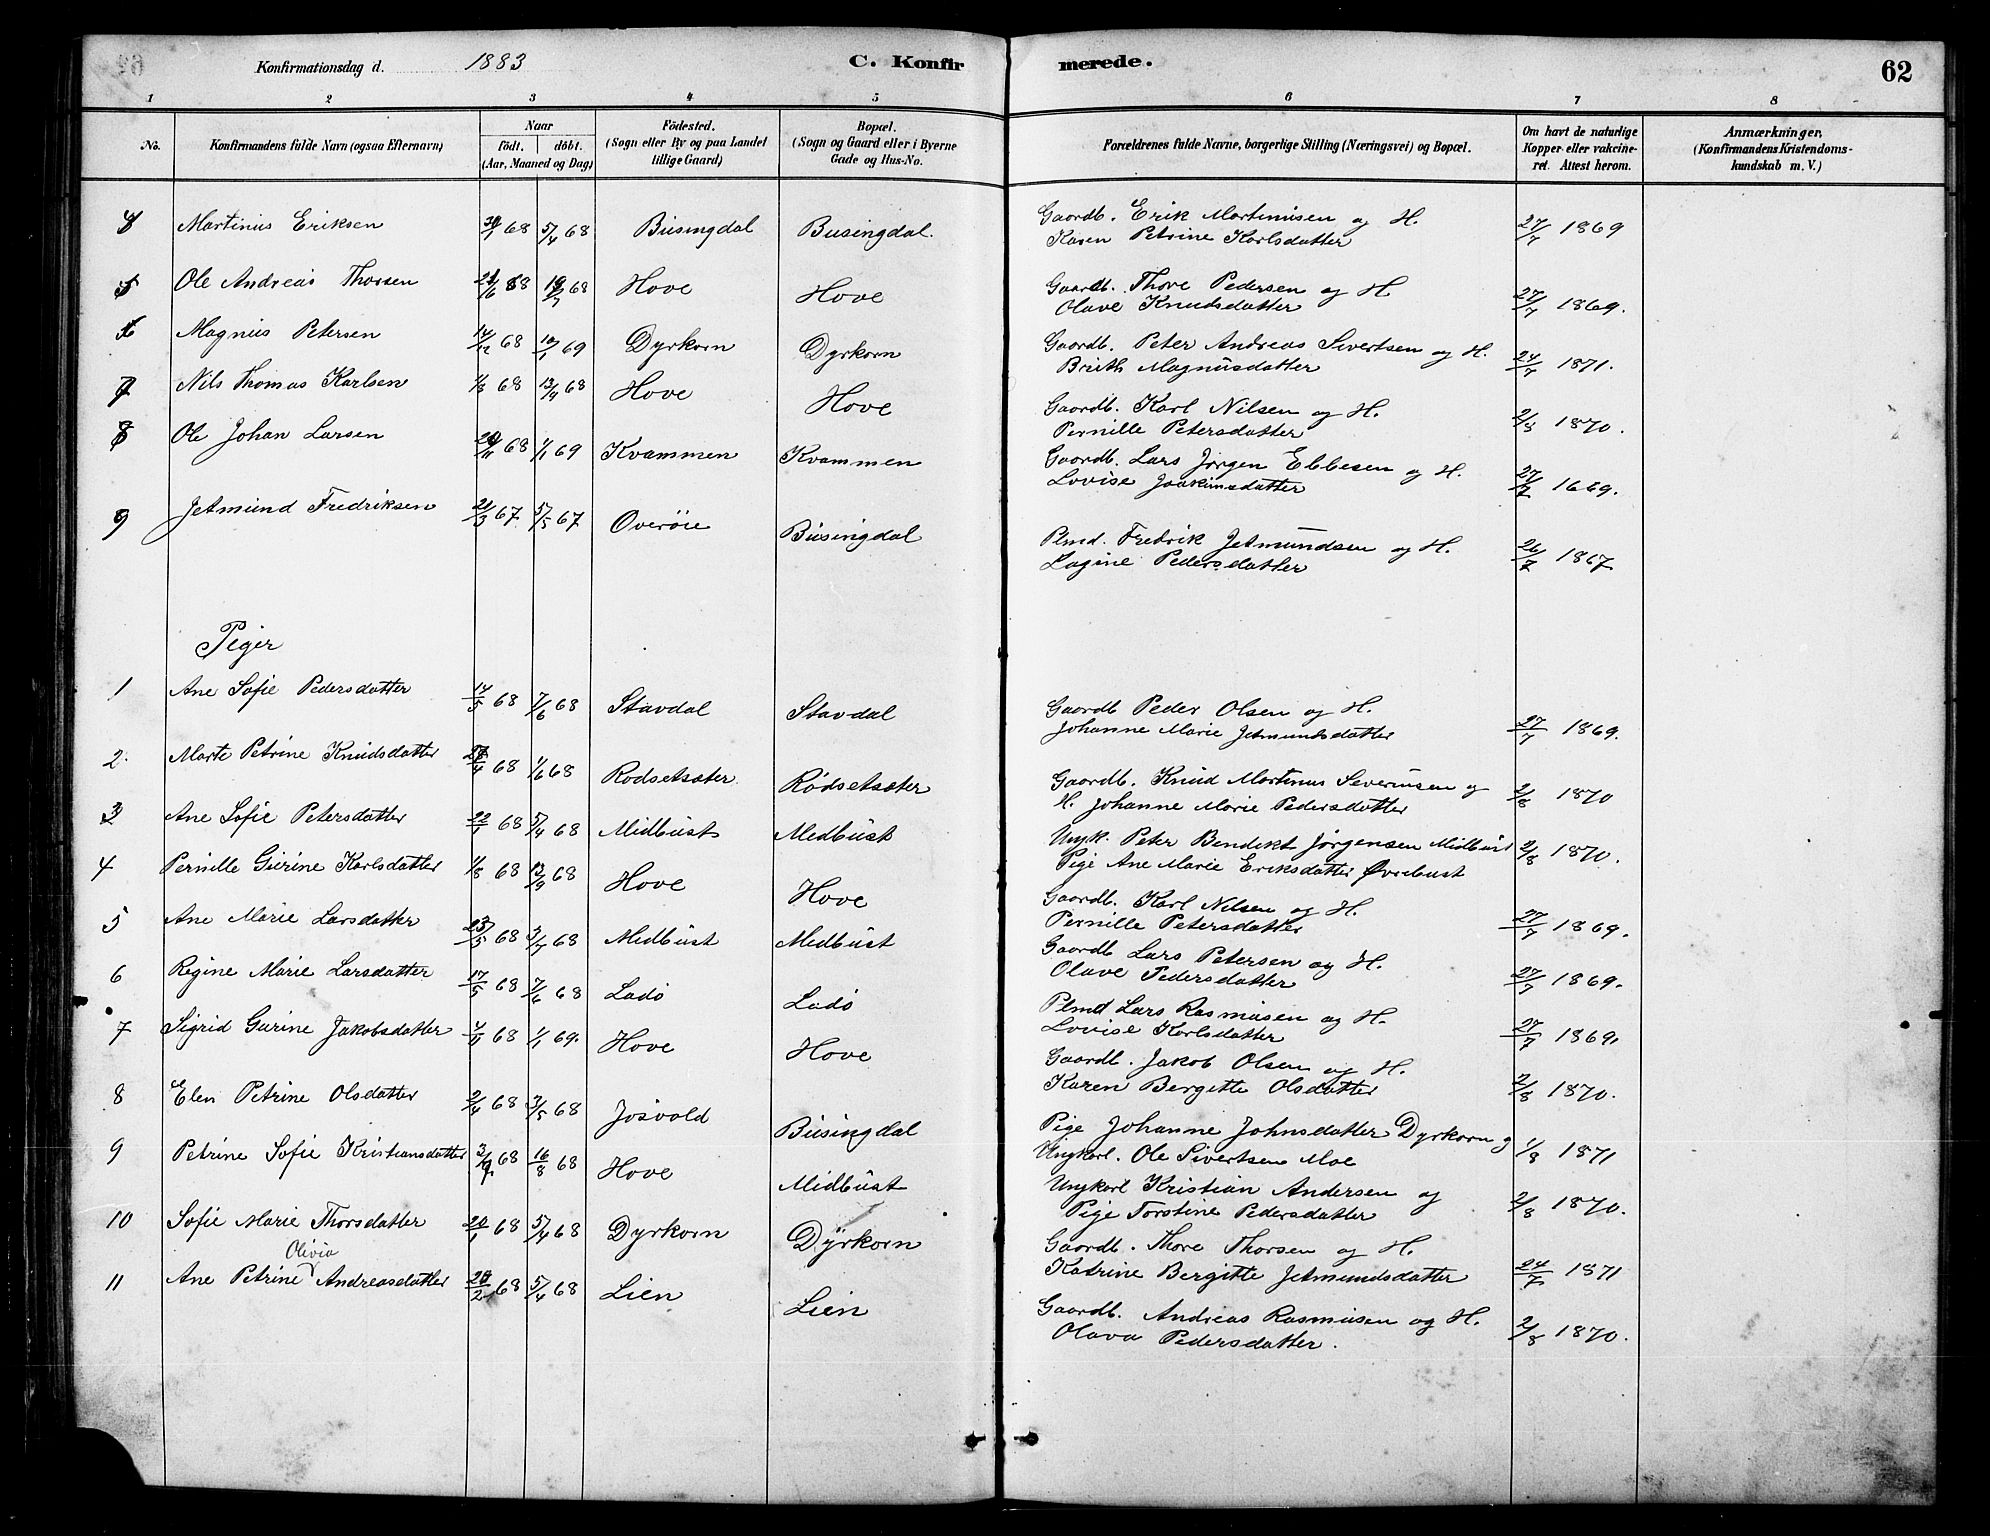 Konfirmationsdag d. 1883 C. Konfirmerede. 62
1 2 3 4 5 6 7 8
No. Konfirmandens fulde Navn (ogsaa Efternavn) Naar födt. döbt. (Aar, Maaned og Dag) Födested. (Sogn eller By og paa Landet tillige Gaard) Bopæl. (Sogn og Gaard eller i Byerne Gade og Hus-No. Forældrenes fulde Navne, borgerlige Stilling (Næringsvei) og Bopæl. Om havt de naturlige Kopper eller vakcineret. Attest herom. Anmærkninger, (Konfirmandens Kristendomskundskab m. V.)
Martinus Eriksen 68 5/4 68 Busingdal Busingdal. Gaardb. Erik Martinusen og H. 27/7 1869
Karen Petrine Karlsdatter
5 Ole Andreas Thorsen 68 68 Hove Hove Gaardb. Thore Pedersen og H 27/7 1869.
Olave Knudsdatter
6 Magnus Petersen 14/12 68 10/1 69 Dyrkorn Dyrkorn Gaardb. Peter Andreas Sivertsen og H. 24/7 1871.
Brith Magnusdatter
7 Nils Thomas Karlsen 1/8 68 13/9 68 Hove Hove Gaardb. Karl Nilsen og H. 2/8 1870.
Pernille Petersdatter
8 Ole Johan Larsen 68 1/1 69 Kvammen Kvammen Gaardb. Lars Jørgen Ebbesen og H. 27/7 1669.
Lovise Joakimsdatter
9 Jetmund Fredriksen 21/3 67 5/5 67 Overöie Busingdal Plmd. Fredrik Jetmundsen og H. 26/7 1867
Lagine Pedersdatter
Piger
1 Ane Sofie Pedersdatter 14/5 68 7/6 68 Stavdal Stavdal Gaardb Peder Olsen og H. 27/7 1869.
Johanne Marie Jetmundsdatter
2. Marte Petrine Knudsdatter 68 1/6 68 Rodsetsæter. Rödsetsæter Gaardb. Knud Martinus Severinsen og 2/8 1870
H. Johanne Marie Pedersdatter
3 Ane Sofie Petersdatter 22/1 68 5/4 68 Midbust Midbust Ungk. Peter Bendikt Jørgensen Midbust 2/8 1870.
Pige Ane Marie Eriksdatter Øvrebust
4 Pernille Gurine Karlsdatter 1/8 68 13/9 68 Hove Hove Gaardb. Karl Nilsen og H. 27/7 1869.
Pernille Petersdatter
5 Ane Marie Larsdatter 23/5 68 3/7 68 Midbust Midbust Gaardb Lars Petersen og H. 27/7 1869.
Olave Pedersdatter
6 Regine Marie Larsdatter 17/5 68 7/6 68 Ladö Ladö Plmd Lars Rasmusen og H. 27/7 1869.
Lovise Karlsdatter
7 Sigrid Gurine Jakobsdatter 68 1/1 69. Hove Hove Gaardb. Jakob Olsen og H. 2/8 1870.
Karen Bergitte Olsdatter
8 Elen Petrine Olsdatter 2/4 68 3/5 68 Josvold Busingdal Pige Johanne Johnsdatter Dyrkorn og 1/8 1871
Ungkarl. Ole Sivertsen Moe
9 Petrine Sofie Kristiansdatter 3/7 68 16/8 68 Hove Midbust Ungkarl Kristian Andersen og 2/8 1870.
Pige Torstine Pedersdatter
10 Sofie Marie Thorsdatter 20/1 68 5/4 68 Dyrkorn Dyrkorn Gaardb. Thore Thorsen og H. 24/7 1871
Katrine Bergitte Jetmundsdatter
Olivia
11 Ane Petrine Andreasdatter 68 5/4 68 Lien Lien Gaardb. Andreas Rasmusen og H. 2/8 1870.
Olava Pedersdatter.